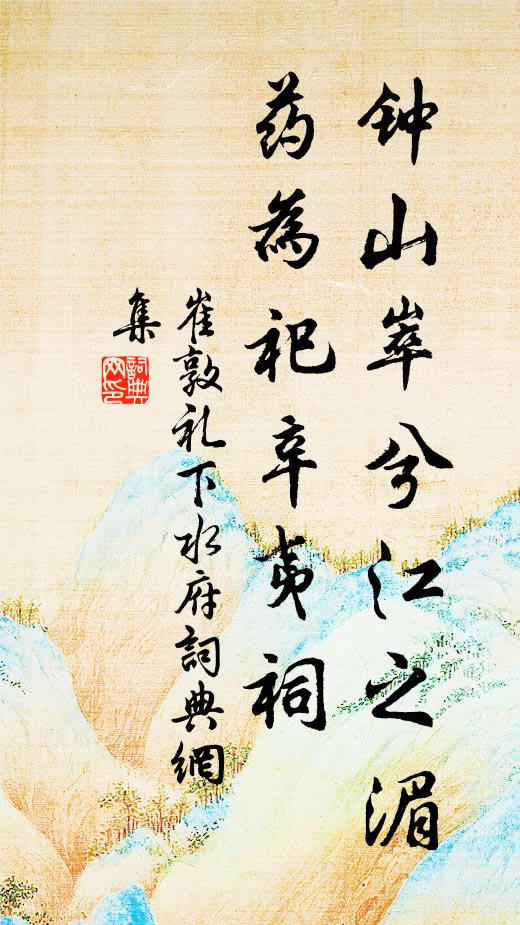 钟山崒兮江之湄
药為祀辛夷祠
崔敦礼下水府詞典網
集
詞典
网印